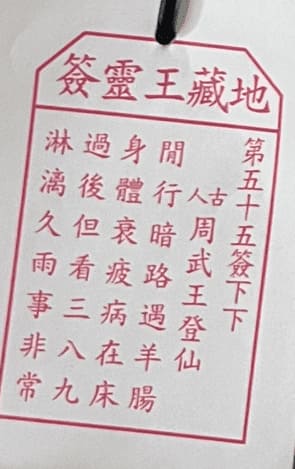 地藏王靈簽
第五十五簽下下
古人周武王登仙
閒行暗路遇羊腸
身體衰疲病在床
過後但看三八九
淋漓久雨事非常